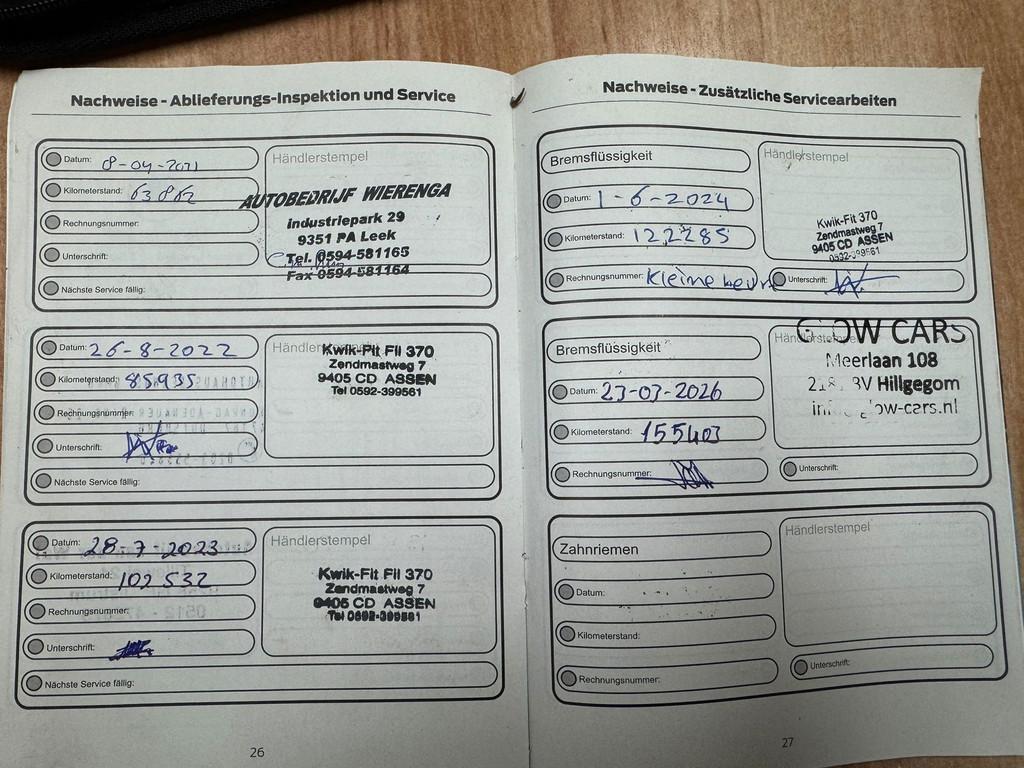 Nachweise - Ablieferungs-Inspektion und Service
Datum: 8-04-2021
Kilometerstand: 63862
Rechnungsnummer:
Unterschrift:
Nächste Service fällig:
Händlerstempel
AUTOBEDRIJF WIERENGA
industriepark 29
9351 PA Leek
Tel. 0594-581165
Fax 0594-581164
Datum: 26-8-2022
Kilometerstand: 85935
Rechnungsnummer:
Unterschrift:
Nächste Service fällig:
Kwik-Fit Fil 370
Zendmastweg 7
9405 CD ASSEN
Tel 0592-399561
Datum: 28-7-2023
Kilometerstand: 102532
Rechnungsnummer:
Unterschrift:
Nächste Service fällig:
Händlerstempel
Kwik-Fit Fil 370
Zendmastweg 7
9405 CD ASSEN
Tel 0592-399561
26
Nachweise - Zusätzliche Servicearbeiten
Bremsflüssigkeit
Datum: 1-6-2024
Kilometerstand: 122285
Rechnungsnummer: Kleine
Unterschrift:
Händlerstempel
Kwik-Fit 370
Zendmastweg 7
9405 CD ASSEN
Bremsflüssigkeit
Datum: 23-03-2026
Kilometerstand: 155403
Rechnungsnummer:
Unterschrift:
GLOW CARS
Meerlaan 108
BV Hillgegom
Zahnriemen
Datum:
Kilometerstand:
Rechnungsnummer:
Unterschrift:
Händlerstempel
27